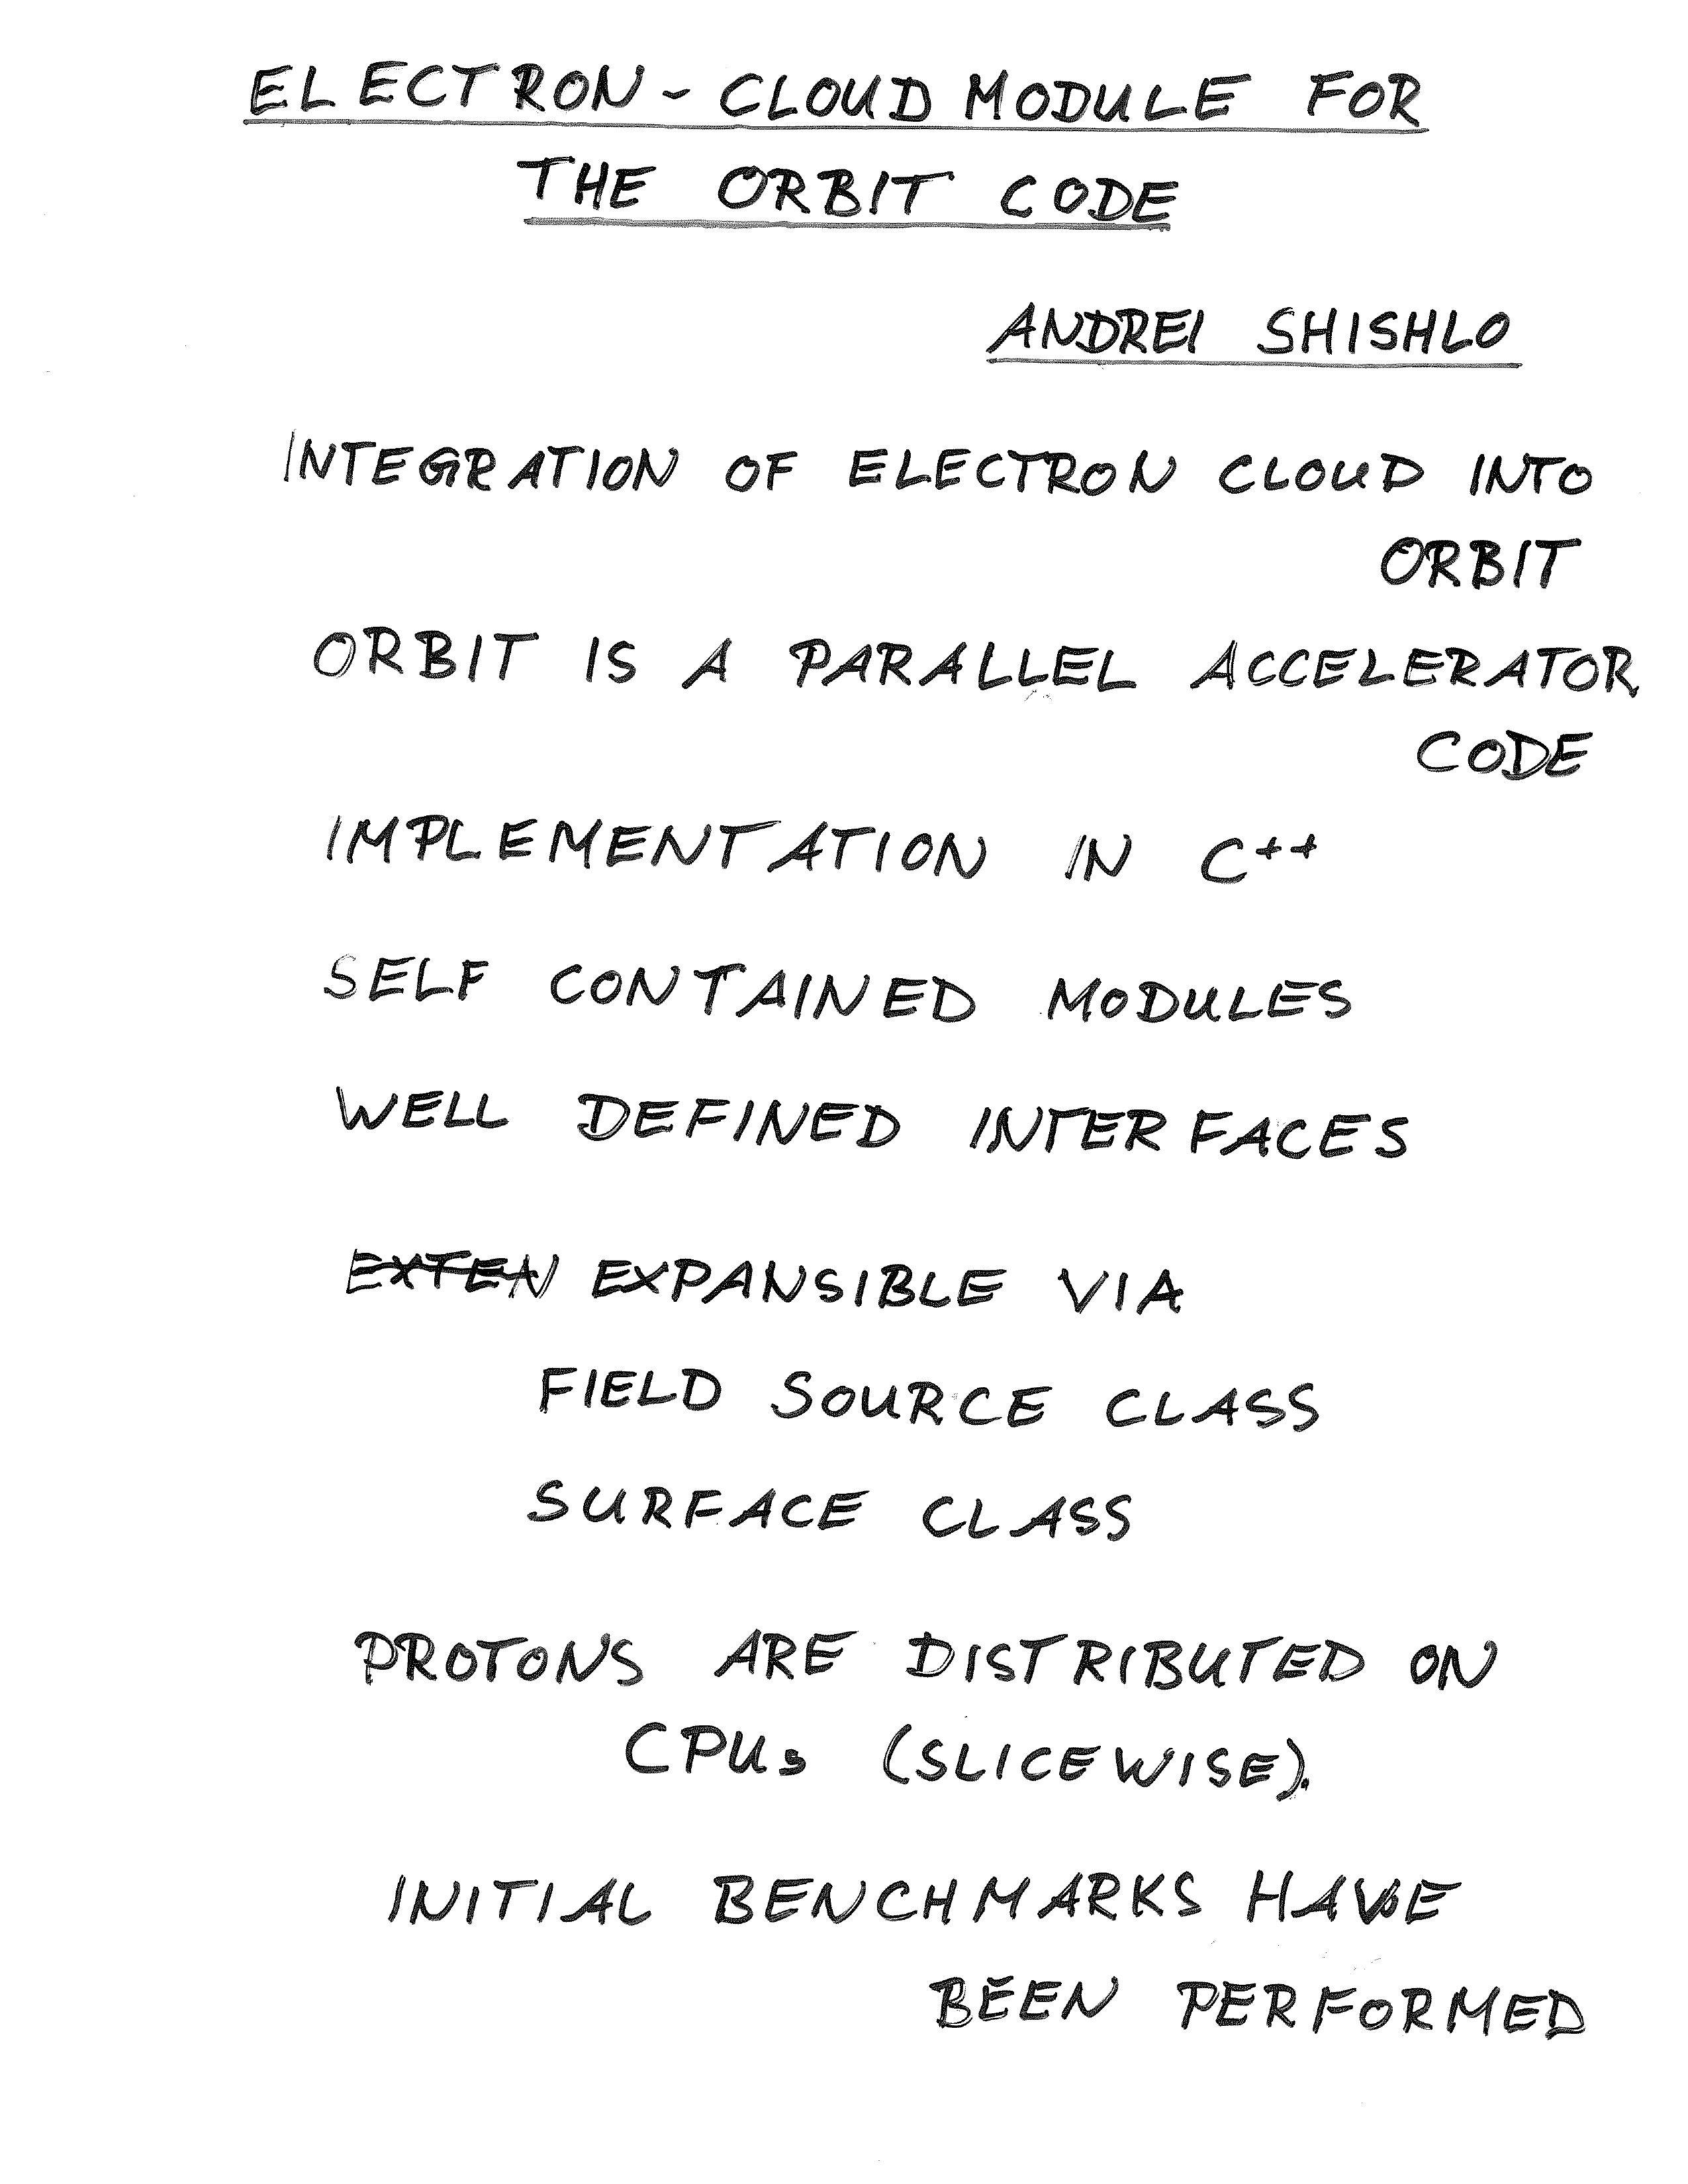 ELECTRON-CLOUD MODULE FOR
THE ORBIT CODE
ANDREI SHISHLO
INTEGRATION OF ELECTRON CLOUD INTO
ORBIT
ORBIT IS A PARALLEL ACCELERATOR
CODE
IMPLEMENTATION IN C++
SELF CONTAINED MODULES
WELL DEFINED INTERFACES
EXTEN EXPANSIBLE VIA
FIELD SOURCE CLASS
SURFACE CLASS
PROTONS ARE DISTRIBUTED ON
CPUs (SLICEWISE).
INITIAL BENCHMARKS HAVE
BEEN PERFORMED